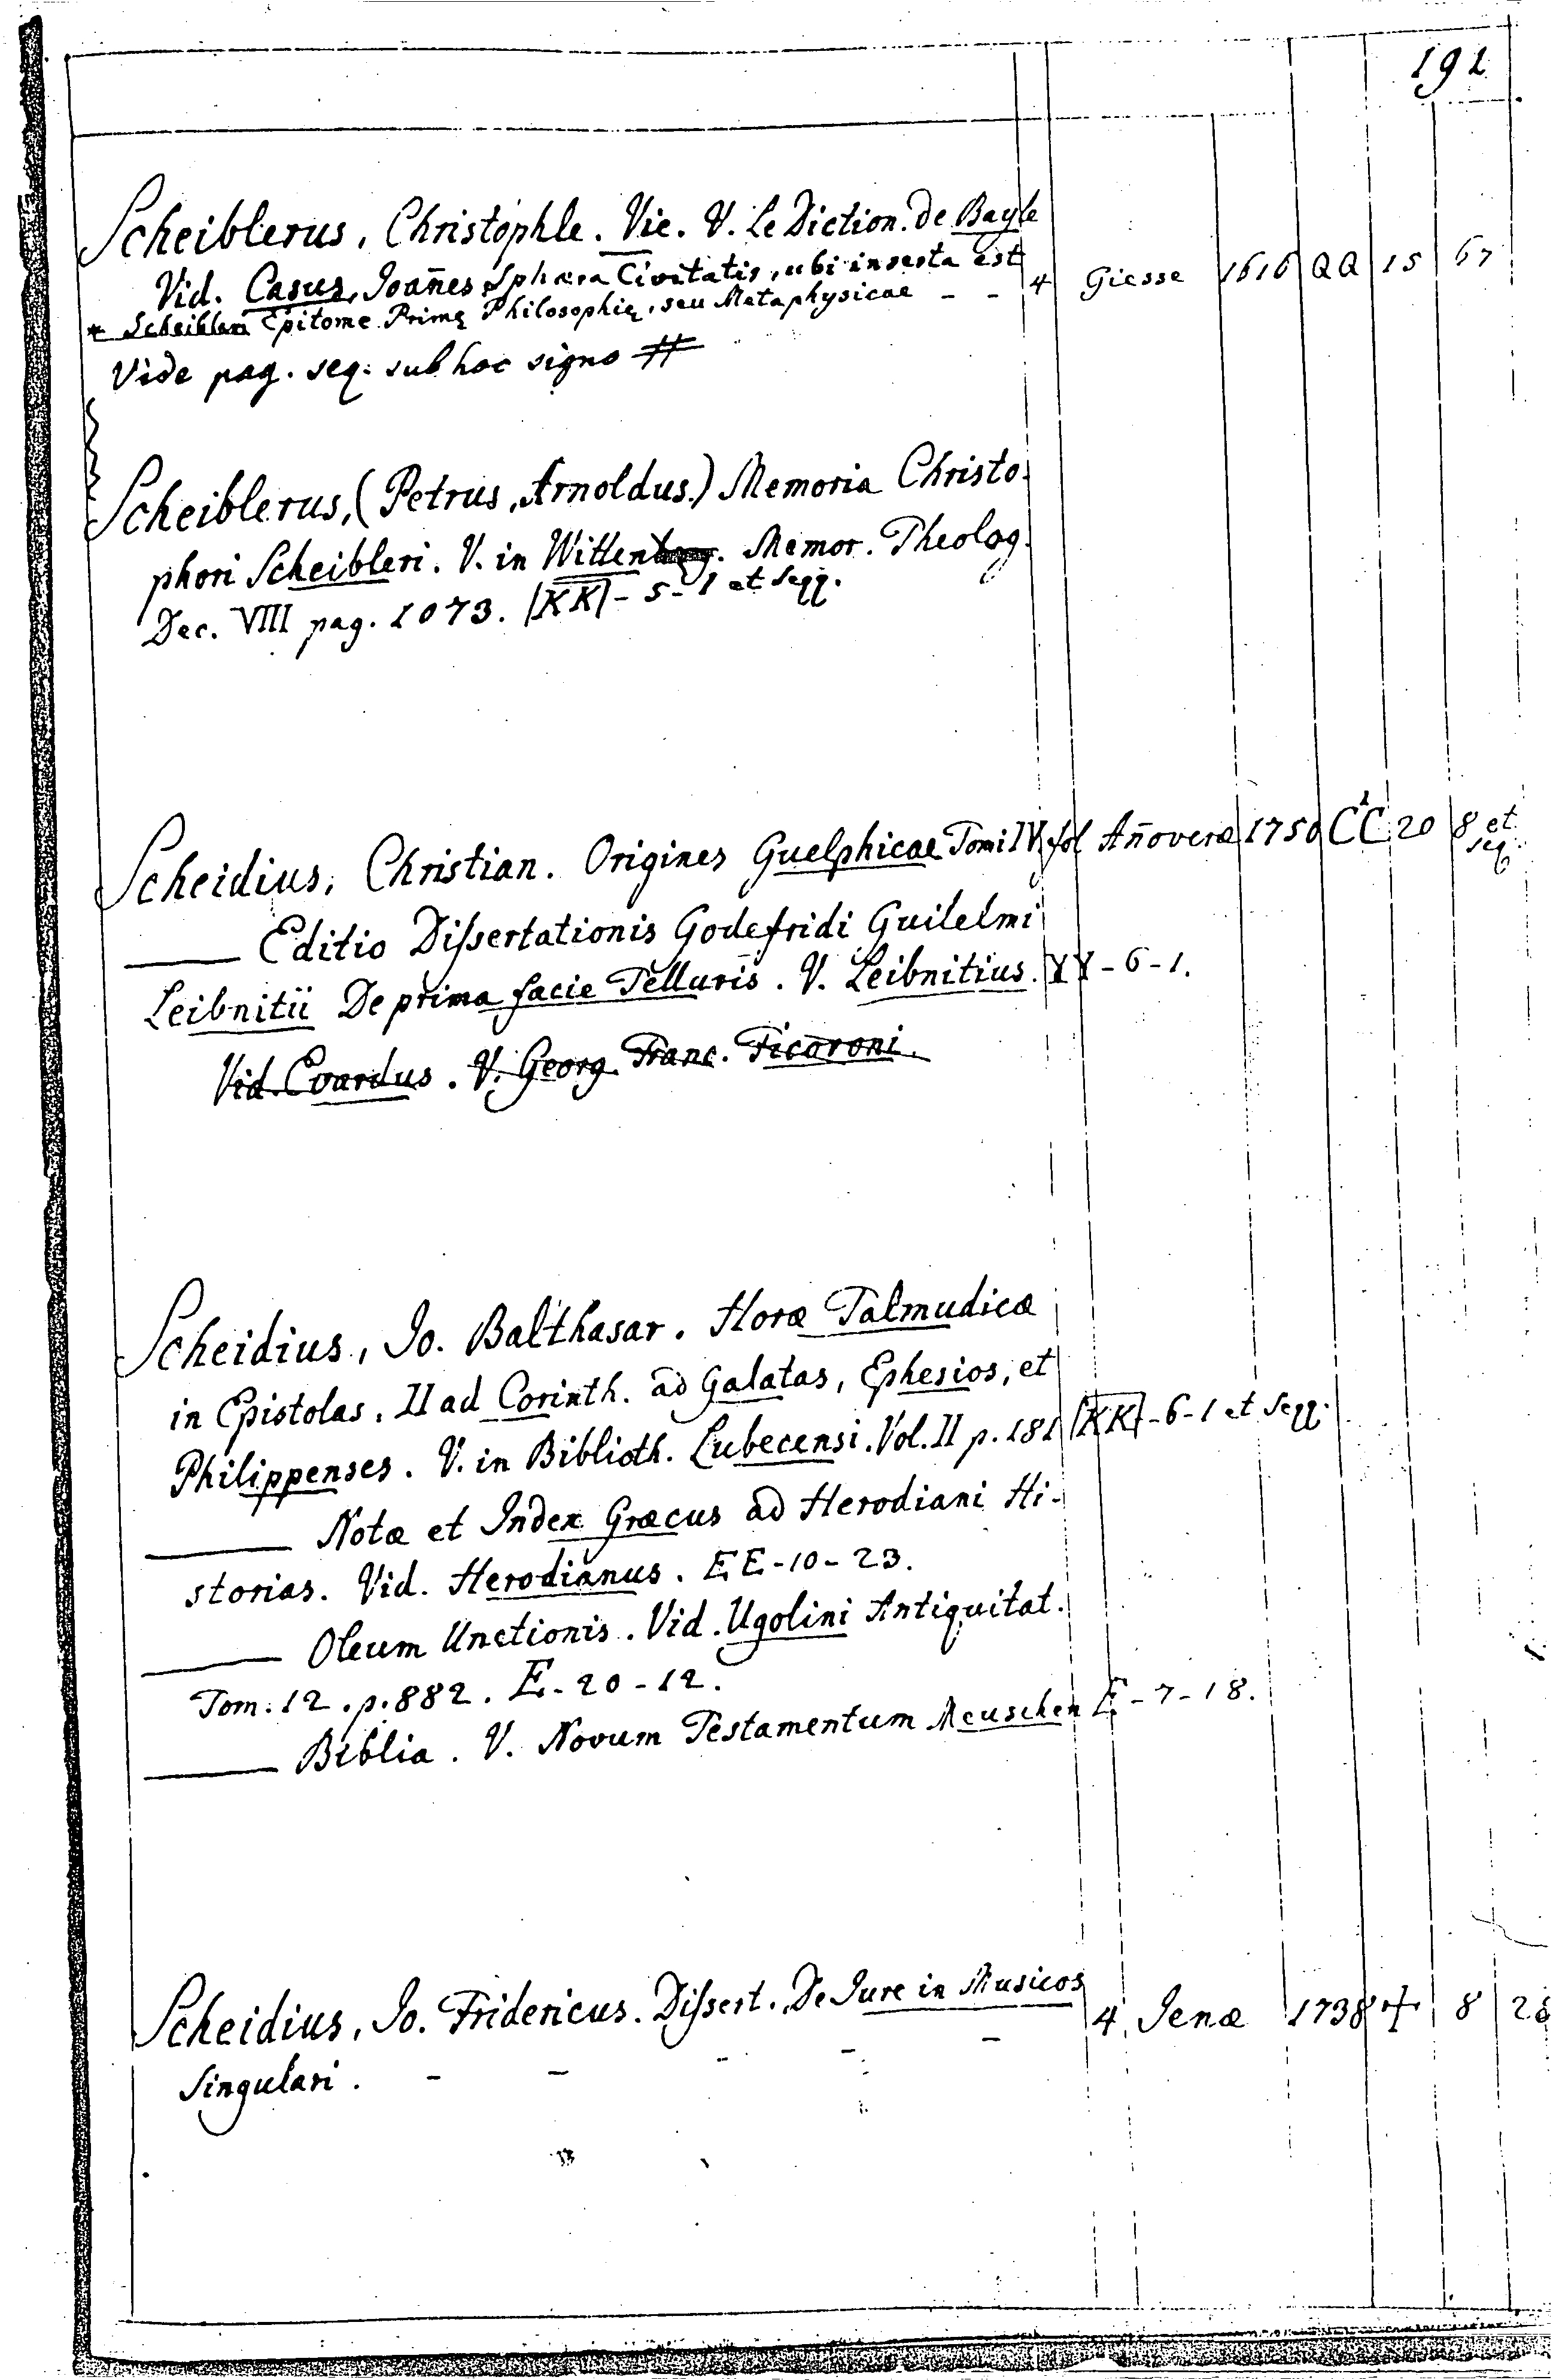 192
Scheiblerus, Christophle. Vie. V. Le Diction. de Bayle
Vid. Casus, Joan̄es Sphæra Civitatis, ubi inserta est
* Scheibleri Epitome Primę Philosophię, seu Metaphysicae - - 4 Giesse 1616 QQ 15 67
Vide pag. seq. sub hoc signo #
Scheiblerus, (Petrus, Arnoldus.) Memoria Christo-
phori Scheibleri. V. in Witten. Memor. Theolog.
Dec. VIII pag. 1073. [KK] - 5 - 1 et seqq.
Scheidius, Christian. Origines Guelphicae Tomi IV. fol An̄overæ 1750 CC 20 8 et seq
——— Editio Dissertationis Godefridi Guilelmi
Leibnitii De prima facie Telluris. V. Leibnitius. YY - 6 - 1.
Vid. Evardus. V. Georg. Franc. Ficoroni.
Scheidius, Jo. Balthasar. Horæ Talmudicæ
in Epistolas, II ad Corinth. ad Galatas, Ephesios, et
Philippenses. V. in Biblioth. Lubecensi. Vol. II p. 181 [KK] - 6 - 1 et seqq.
——— Notæ et Index Græcus ad Herodiani Hi-
storias. Vid. Herodianus. EE - 10 - 23.
——— Oleum Unctionis. Vid. Ugolini Antiquitat.
Tom. 12. p. 882. E - 20 - 12.
——— Biblia. V. Novum Testamentum Meuschen E - 7 - 18.
Scheidius, Jo. Fridericus. Dissert. De Jure in Musicos
Singulari. - - - - - 4 Jenæ 1738 + 8